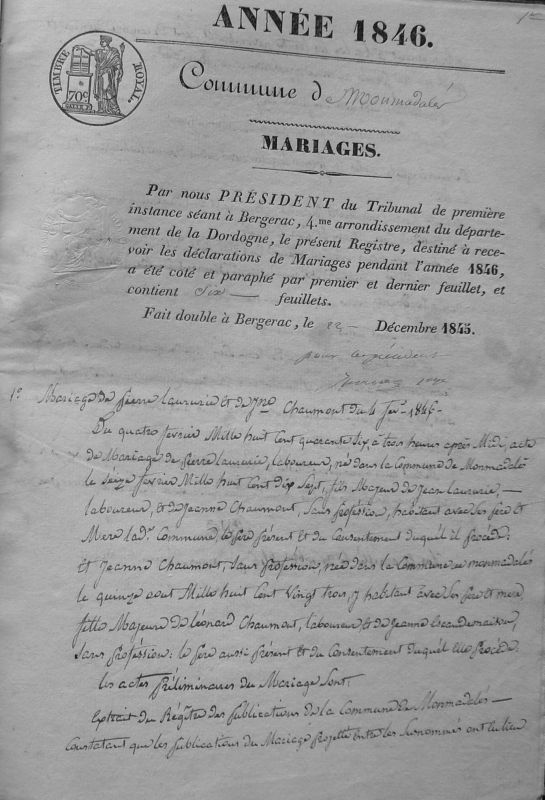 1er
ANNÉE 1846.
TIMBRE ROYAL.
70c
Commune de Monmadalès
MARIAGES.
Par nous PRÉSIDENT du Tribunal de première
instance séant à Bergerac, 4.me arrondissement du départe-
ment de la Dordogne, le présent Registre, destiné à rece-
voir les déclarations de Mariages pendant l'année 1846,
a été coté et paraphé par premier et dernier feuillet, et
contient Six feuillets.
Fait double à Bergerac, le 22 Décembre 1845.
pour le président
1o Mariage de pierre Laurerie et de Jne Chaumont du 4 fer. 1846.
Du quatre fevrier Mille huit Cent quarante Six a trois heures après Midi, acte
de Mariage de pierre Laurerie, laboureur, né dans la Commune de Monmadalès
le Seize fevrier Mille huit Cent dix Sept, fils Majeur de Jean Laurerie,
laboureur, et de Jeanne Chaumont, Sans profession, habitant avec Ses père et
Mere lad. Commune le père présent et du Consentement duquel il procède:
et Jeanne Chaumont, Sans profession, née dans la Commune de monmadalès
le quinze aout Mille huit Cent Vingt trois, y habitant avec Ses père et mere,
fille Majeure de léonard Chaumont, laboureur et de Jeanne
Sans profession: le père aussi présent et du Consentement duquel elle procède.
les actes préliminaires du Mariage Sont:
extrait du Régitre des publications de la Commune de Monmadalès
Constatant que les publications du Mariage projetté entre les Surnommés ont eu lieu